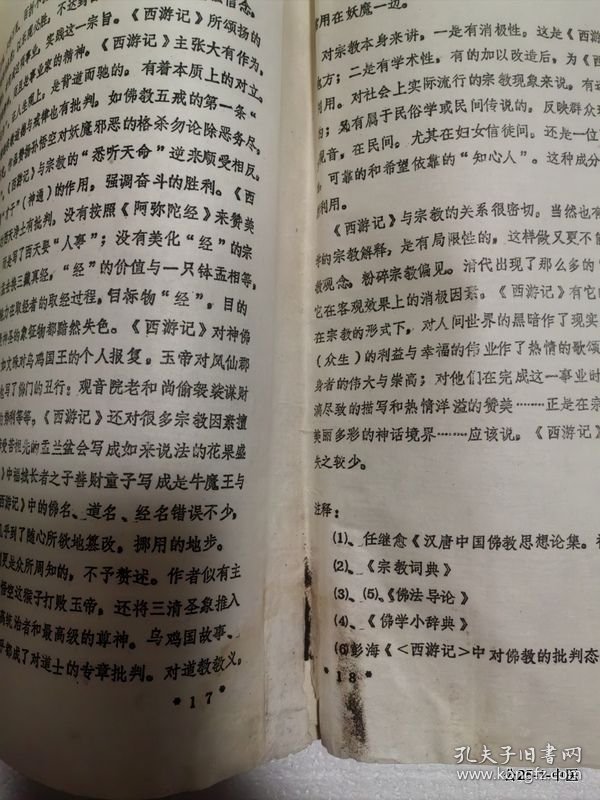 信念。
不达到
以求魔必胜,
《西游记》所颂扬的
项事业,实践这一宗旨。
《西游记》主张大有作为,
事业家的精神。
是背道而驰的。有着本质上的对立。
戒律也有批判。如佛教五戒的第一条“
孙悟空对妖魔邪恶的格杀勿论除恶务尽,
《西游记》与宗教的“悉听天命”逆来顺受相反。
(神通)的作用,强调奋斗的胜利。《西
西天净土有批判。没有按照《阿弥陀经》来赞美
写了西天要“人事”;没有美化“经”的宗
三藏真经,“经”的价值与一只钵盂相等,
取经者的取经过程,目标物“经”,目的
神圣的象征物都黯然失色。《西游记》对神佛
如文殊对乌鸡国王的个人报复。玉帝对凤仙郡
也写了佛门的丑行:观音院老和尚偷袈裟谋财
等等。《西游记》还对很多宗教因素擅
受苦祖先的盂兰盆会写成如来说法的花果盛
》中福城长者之子善财童子写成是牛魔王与
西游记》中的佛名、道名、经名错误不少,
几乎到了随心所欲地篡改,挪用的地步。
更是众所周知的,不予赘述。作者似有主
悟空这猴子打败玉帝,还将三清圣象推入
高统治者和最高级的尊神。乌鸡国故事、
乎都成了对道士的专章批判。对道教教义,
* 17 *
用在妖魔一边。
对宗教本身来讲,一是有消极性。这是《西游
地方;二是有学术性,有的加以改造后,为《西
利用。对社会上实际流行的宗教现象来说,有迷
;又有属于民俗学或民间传说的,反映群众
观音,在民间。尤其在妇女信徒间。还是一位
、可靠的和希望依靠的“知心人”。这种成分
利用。
《西游记》与宗教的关系很密切。当然也有
的宗教解释,是有局限性的,这样做又更不能
教观念。粉碎宗教偏见。清代出现了那么多的“
它在客观效果上的消极因素。《西游记》有它的
在宗教的形式下,对人间世界的黑暗作了现实
(众生)的利益与幸福的伟业作了热情的歌颂
身者的伟大与崇高;对他们在完成这一事业时
漓尽致的描写和热情洋溢的赞美……正是在宗
美丽多彩的神话境界……应该说。《西游记》
失之较少。
注释:
(1)、任继愈《汉唐中国佛教思想论集。
(2)、《宗教词典》
(3)、(5)、《佛法导论》
(4)、《佛学小辞典》
(6)彭海《<西游记>中对佛教的批判态
* 18 *
孔夫子旧书网
www.kongfz.com